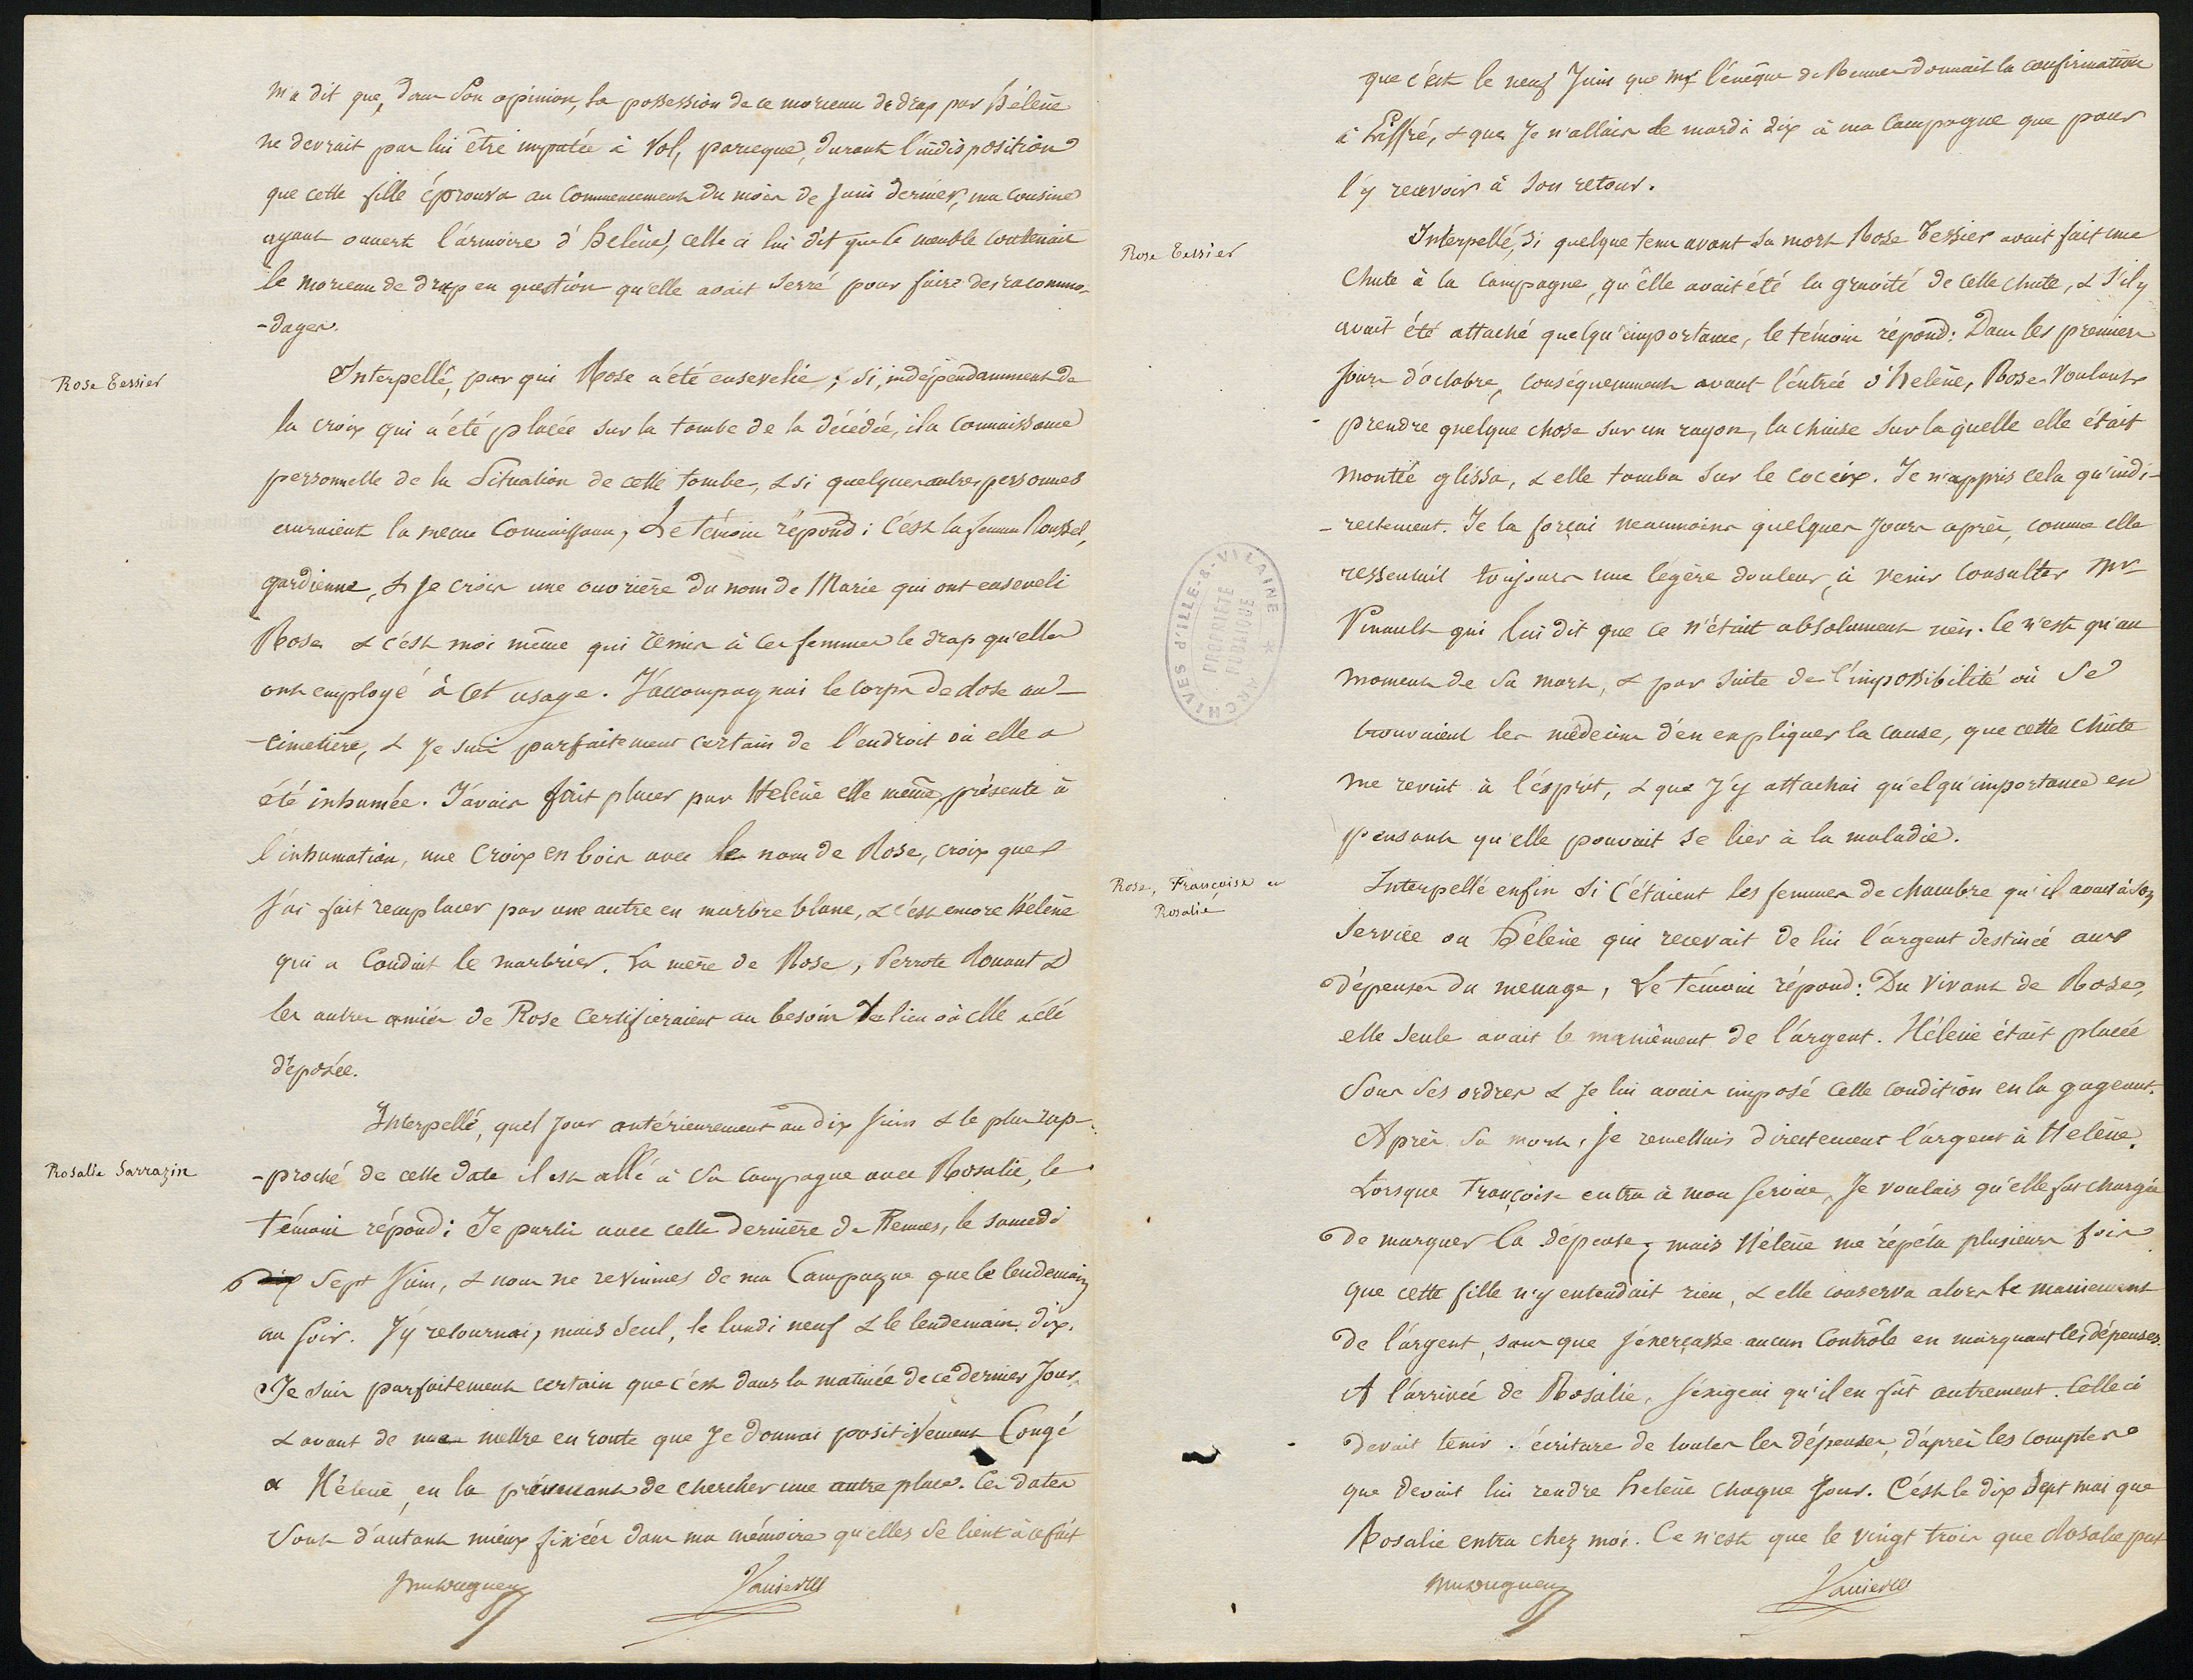 m'a dit que, dans son opinion, la possession de ce morceau de drap par hélène
ne devrait pas lui être imputée à vol, parceque, durant l'indisposition
que cette fille éprouva au commencement du mois de Juin dernier, ma cousine
ayant ouvert l'armoire d'helène, celle ci lui dit que le meuble contenait
le morceau de drap en question qu'elle avait serré pour faire des racommo-
-dages.
Rose Tessier
Interpellé, par qui Rose a été ensevelie, si, indépendamment de
la croix qui a été placée sur la tombe de la décédée, il a connaissance
personnelle de la situation de cette tombe, & si quelques autres personnes
auraient la meme connaissance, Le témoin répond: C'est la femme Roussel,
gardienne, & je crois une ouvrière du nom de Marie qui ont enseveli
Rose & c'est moi même qui remis à ces femmes le drap qu'elles
ont employé à cet usage. J'accompagnai le corps de Rose au
-cimetière, & je suis parfaitement certain de l'endroit où elle a
été inhumée. J'avais fait placer par Helène elle même, présente à
l'inhumation, une croix en bois avec le nom de Rose, croix que
j'ai fait remplacer par une autre en marbre blanc, & c'est encore hélène
qui a conduit le marbrier. La mère de Rose, Perrote Rouault &
les autres amies de Rose certifieraient au besoin le lieu où elle a été
déposée.
Rosalie Sarrazin
Interpellé, quel jour antérieurement au dix Juin & le plus rap-
-proché de cette date il est allé à sa campagne avec Rosalie, le
témoin répond: Je partis avec cette dernière de Rennes, le samedi
dix Sept Juin, & nous ne revinmes de ma Campagne que le lendemain
au soir. J'y retournai, mais seul, le lundi neuf & le lendemain dix.
Je suis parfaitement certain que c'est dans la matinée de ce dernier Jour,
& avant de me mettre en route que je donnai positivement Congé
à Hélène, en la prévenant de chercher une autre place. Ces dates
sont d'autant mieux fixées dans ma mémoire qu'elles se lient à ce fait
que c'est le neuf Juin que mgr l'évêque de Rennes donnait la confirmation
à Liffré, & que je n'allais le mardi dix à ma Campagne que pour
l'y recevoir à son retour.
Rose Tessier
Interpellé, si quelque tems avant sa mort Rose Tessier avait fait une
chute à la campagne, qu'elle avait été la gravité de cette chute, & s'il y
avait été attaché quelqu'importance, le témoin répond: Dans les premiers
Jours d'octobre, conséquemment avant l'entrée d'helène, Rose voulant
prendre quelque chose sur un rayon, la chaise sur laquelle elle était
montée glissa, & elle tomba sur le coccix. Je n'appris cela qu'indi-
-rectement. Je la forçai neanmoins quelques jours après, comme elle
ressentait toujours une légère douleur, à venir consulter Mr
Pinault qui lui dit que ce n'était absolument rien. Ce n'est qu'au
moment de sa mort, & par suite de l'impossibilité où se
trouvaient les médecins d'en expliquer la cause, que cette chûte
me revint à l'esprit, & que j'y attachai quelqu'importance en
pensant qu'elle pouvait se lier à la maladie.
Rose, Françoise et
Rosalie
Interpellé enfin si c'étaient les femmes de chambre qu'il avait à son
service ou Hélène qui recevait de lui l'argent destiné aux
dépenses du menage, Le témoin répond: Du vivant de Rose,
elle seule avait le maniement de l'argent. Hélène était placée
sous ses ordres & je lui avais imposé cette condition en la gageant.
Après sa mort, je remettais directement l'argent à Helène.
Lorsque Françoise entra à mon service, je voulais qu'elle fut chargée
de marquer la dépense; mais Hélène me répéta plusieurs fois
que cette fille n'y entendait rien, & elle conserva alors le maniement
de l'argent, sans que j'exerçasse aucun contrôle en marquant les dépenses.
A l'arrivée de Rosalie, j'exigeai qu'il en fût autrement. Celle ci
devait tenir écriture de toutes les dépenses, d'après les comptes
que devait lui rendre helène chaque Jour. C'est le dix Sept mai que
Rosalie entra chez moi. Ce n'est que le vingt trois que Rosalie put
ARCHIVES d'ILLE-&-VILAINE
PROPRIÉTÉ
PUBLIQUE